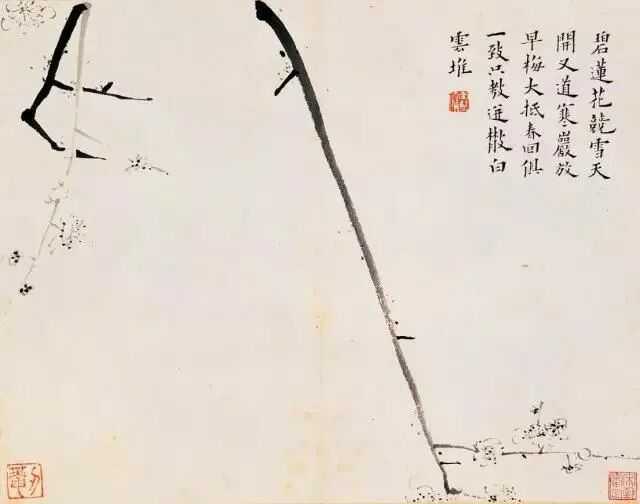 碧蓮花競雪天
開又道寒巖放
早梅大抵春回俱
一致只教迸散白
雲堆